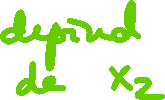 depind
de x2